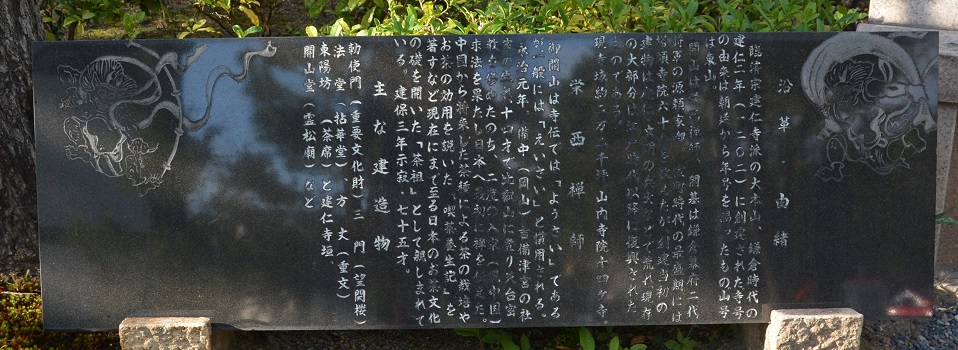 沿革・由緒
臨済宗建仁寺派の大本山、鎌倉時代の
建仁二年(一二〇二)に創建された寺号
の由来は朝廷から年号を賜ったもの山号
は東山。
開山は栄西禅師、開基は鎌倉幕府二代
将軍の源頼家
塔頭寺院六十
の大部分は江戸時代以降に復興された
ものである。
現寺域約二万二千坪 山内寺院十四ヶ寺。
栄西禅師
御開山は寺伝では「ようさい」であるが
一般には「えいさい」と慣用される。
永治元年、備中(岡山)吉備津宮の社
家の生れ十四才で比叡山に登り天台密
教を修めたのち、二度の入宋(現・中国)
求法を果たし日本へ
中国から将来した茶種による茶の栽培や
お茶の効用を説いた「喫茶養生記」を
著すなど現在にまで至る日本のお茶文化
の礎を開いた「茶祖」として親しまれて
いる。建保三年示寂 七十五才。
主な建造物
勅使門(重要文化財)三門(望闕楼)
法堂(拈華堂)、方丈(重文)
東陽坊(茶席)と建仁寺垣
開山堂(霊松廟)など